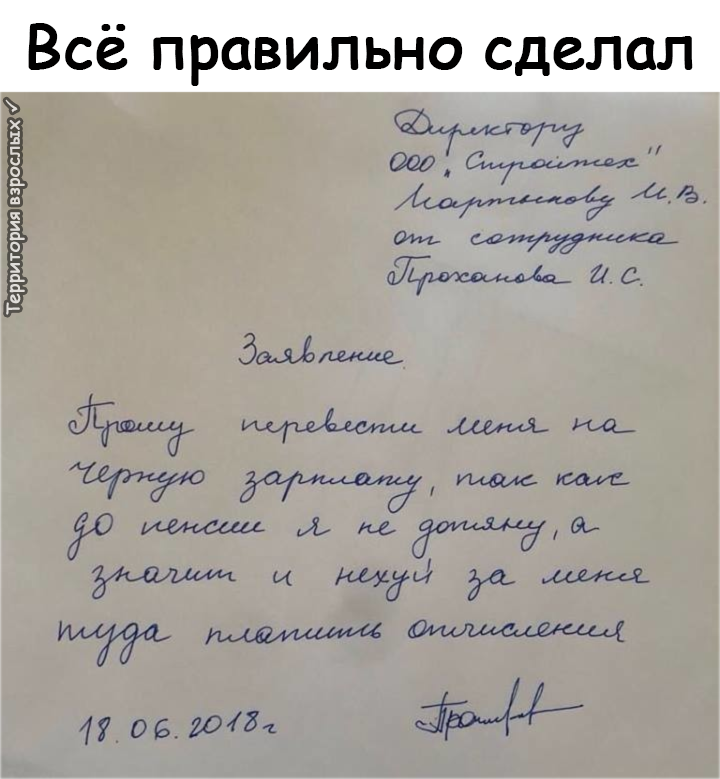 Всё правильно сделал
Территория взрослых ✓
Директору
ООО "Стройтех"
Мартынову И.В.
от сотрудника
Проханова И.С.
Заявление.
Прошу перевести меня на
черную зарплату, так как
до пенсии я не дотяну, а
значит и нехуй за меня
туда платить отчисления
18.06.2018г